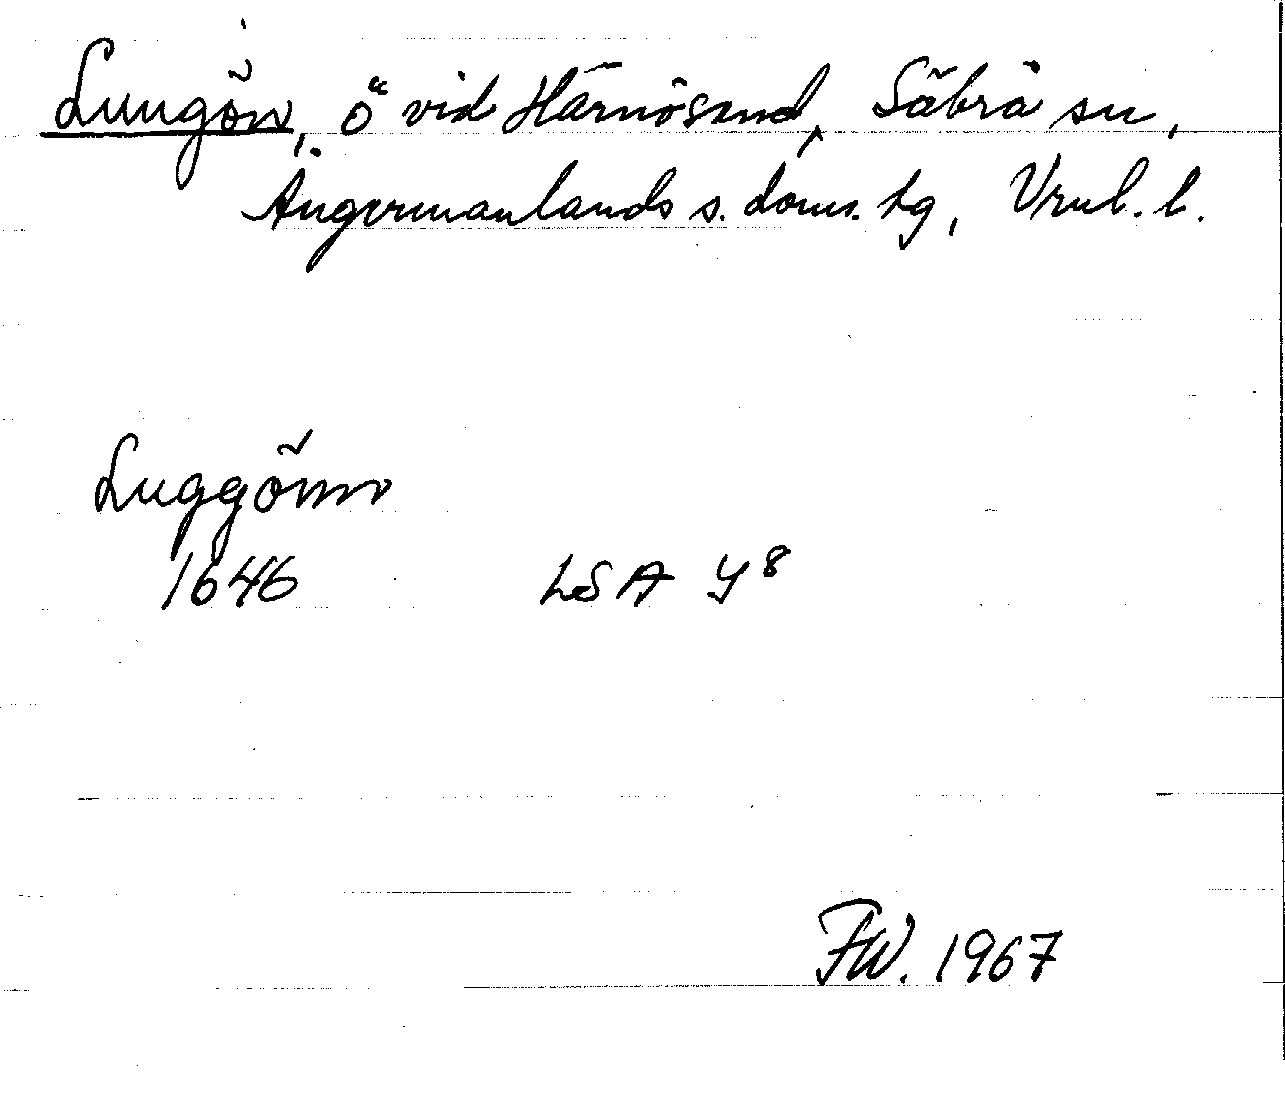 Lungön, ö vid Härnösand, Säbrå sn,
Ångermanlands s. doms. hg, Vrnl. l.
Luggönn
1646 LSA Y8
FW. 1967